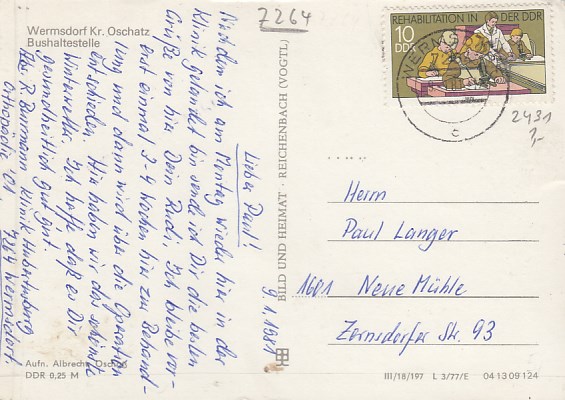 7264
Wermsdorf Kr. Oschatz
Bushaltestelle
REHABILITATION IN DER DDR
10
DDR
WERMS
c
2431
9.1.1981
Lieber Paul!
Nachdem ich am Montag wieder hier in der
Klinik gelandet bin sende ich Dir die besten
Grüße von hier Dein Rudi. Ich bleibe vor-
erst einmal 3-4 Wochen hier zur Behand-
lung und dann wird über die Operation
entschieden. Hier haben wir das schönste
Winterwetter. Ich hoffe daß es Dir
gesundheitlich gut geht.
Abs. R. Klinik Hubertusburg
Orthopädie 7264 Wermsdorf.
BILD UND HEIMAT · REICHENBACH (VOGTL)
Herrn
Paul Langer
1601 Neue Mühle
Zernsdorfer Str. 93
Aufn. Albrecht, Oschatz
DDR 0,25 M
III/18/197 L 3/77/E 04 13 09 124